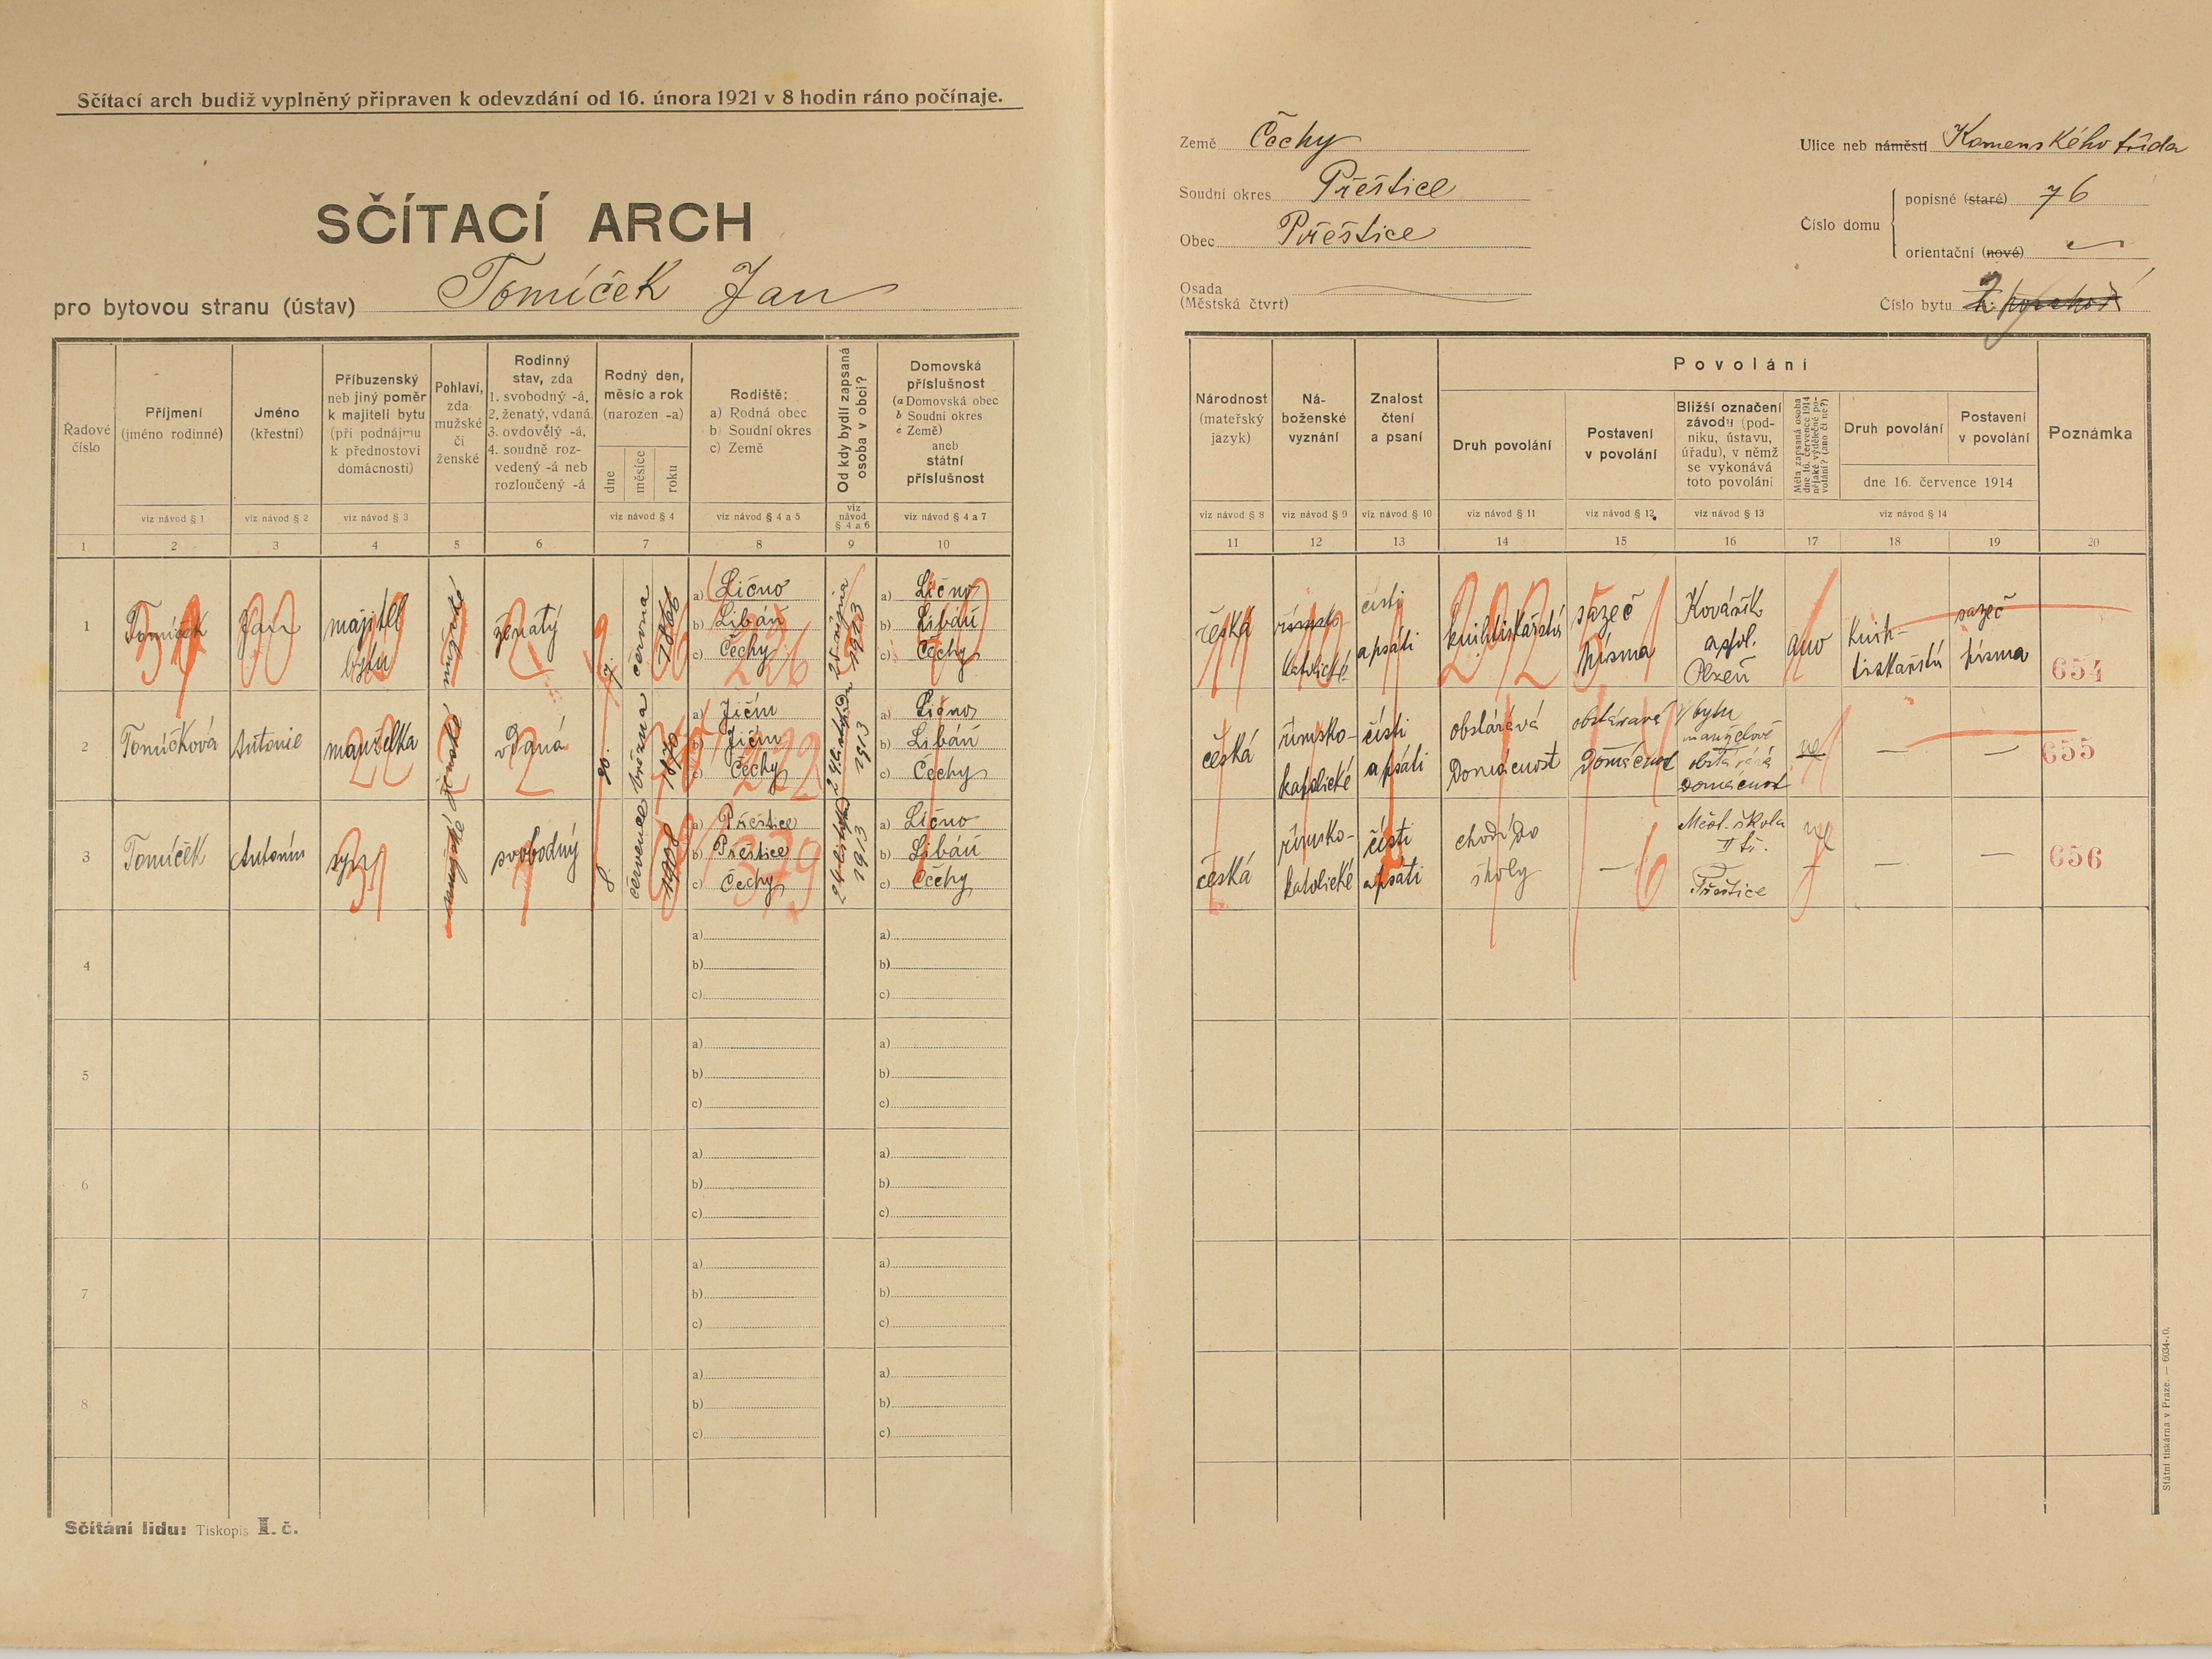 Sčítací arch budiž vyplněný připraven k odevzdání od 16. února 1921 v 8 hodin ráno počínaje.
SČÍTACÍ ARCH
pro bytovou stranu (ústav) Tomíček Jan
Země Čechy
Soudní okres Přeštice
Obec Přeštice
Osada
(Městská čtvrť)
Ulice neb náměstí Komenského třída
Číslo domu
popisné (staré) 76
orientační (nové)
Číslo bytu 2
Řadové číslo
Příjmení (jméno rodinné)
Jméno (křestní)
Příbuzenský neb jiný poměr k majiteli bytu (při podnájmu k přednostovi domácnosti)
Pohlaví, zda mužské či ženské
Rodinný stav, zda 1. svobodný -á, 2. ženatý, vdaná, 3. ovdovělý -á, 4. soudně rozvedený -á neb rozloučený -á
Rodný den, měsíc a rok (narozen -a)
dne
měsíce
roku
Rodiště:
a) Rodná obec
b) Soudní okres
c) Země
Od kdy bydlí zapsaná osoba v obci?
Domovská příslušnost
(a Domovská obec
b Soudní okres
c Země)
aneb
státní příslušnost
viz návod § 1
viz návod § 2
viz návod § 3
viz návod § 4
viz návod § 4 a 5
viz návod § 4 a 6
viz návod § 4 a 7
1 2 3 4 5 6 7 8 9 10
Národnost (mateřský jazyk)
Náboženské vyznání
Znalost čtení a psaní
Povolání
Druh povolání
Postavení v povolání
Bližší označení závodu (podniku, ústavu, úřadu), v němž se vykonává toto povolání
Měla zapsaná osoba dne 16. července 1914 nějaké výdělečné povolání? (ano či ne?)
Druh povolání
Postavení v povolání
dne 16. července 1914
Poznámka
viz návod § 8
viz návod § 9
viz návod § 10
viz návod § 11
viz návod § 12
viz návod § 13
viz návod § 14
11 12 13 14 15 16 17 18 19 20
1 Tomíček Jan majitel bytu mužské ženatý 7. června 1866
a) Lično
b) Libáň
c) Čechy
1913
a) Lično
b) Libáň
c) Čechy
česká římsko-katolické čísti a psáti knihtiskařství sazeč písma Kovářík a spol. Plzeň ano knihtiskařství sazeč písma 654
2 Tomíčková Antonie manželka ženské vdaná 30. března 1870
a) Jičín
b) Jičín
c) Čechy
1913
a) Lično
b) Libáň
c) Čechy
česká římsko-katolické čísti a psáti obstarává domácnost obstarává domácnost V bytu manželově obstarává domácnost ne — — 655
3 Tomíček Antonín syn mužské svobodný 8 července 1908
a) Přeštice
b) Přeštice
c) Čechy
24 listopadu 1913
a) Lično
b) Libáň
c) Čechy
česká římsko-katolické čísti a psáti chodí do školy — Měšť. škola II tř. Přeštice ne — — 656
4
a)
b)
c)
a)
b)
c)
5
a)
b)
c)
a)
b)
c)
6
a)
b)
c)
a)
b)
c)
7
a)
b)
c)
a)
b)
c)
8
a)
b)
c)
a)
b)
c)
Sčítání lidu: Tiskopis I. č.
Státní tiskárna v Praze. — 6034-.0.